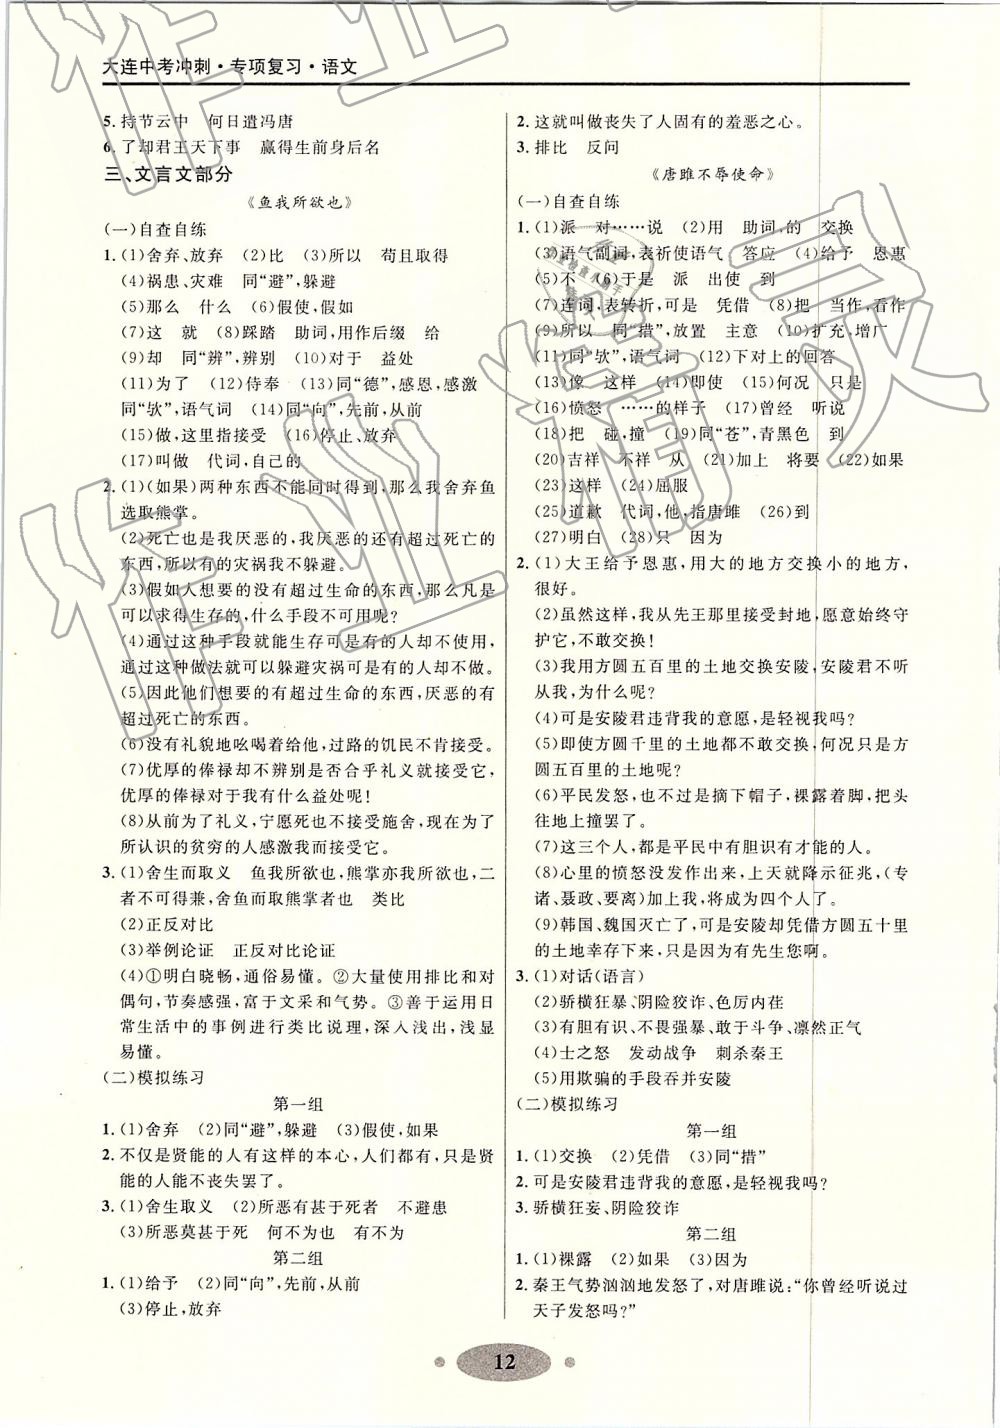 大连中考冲刺·专项复习·语文
5. 持节云中　何日遣冯唐
6. 了却君王天下事　赢得生前身后名
三、文言文部分
《鱼我所欲也》
(一)自查自练
1. (1)舍弃、放弃　(2)比　(3)所以　苟且取得
(4)祸患、灾难　同“避”,躲避
(5)那么　什么　(6)假使,假如
(7)这　就　(8)踩踏　助词,用作后缀　给
(9)却　同“辨”,辨别　(10)对于　益处
(11)为了　(12)侍奉　(13)同“德”,感恩,感激
同“欤”,语气词　(14)同“向”,先前,从前
(15)做,这里指接受　(16)停止、放弃
(17)叫做　代词,自己的
2. (1)(如果)两种东西不能同时得到,那么我舍弃鱼
选取熊掌。
(2)死亡也是我厌恶的,我厌恶的还有超过死亡的
东西,所以有的灾祸我不躲避。
(3)假如人想要的没有超过生命的东西,那么凡是
可以求得生存的,什么手段不可用呢?
(4)通过这种手段就能生存可是有的人却不使用,
通过这种做法就可以躲避灾祸可是有的人却不做。
(5)因此他们想要的有超过生命的东西,厌恶的有
超过死亡的东西。
(6)没有礼貌地吆喝着给他,过路的饥民不肯接受。
(7)优厚的俸禄却不辨别是否合乎礼义就接受它,
优厚的俸禄对于我有什么益处呢!
(8)从前为了礼义,宁愿死也不接受施舍,现在为了
所认识的贫穷的人感激我而接受它。
3. (1)舍生而取义　鱼我所欲也,熊掌亦我所欲也,二
者不可得兼,舍鱼而取熊掌者也　类比
(2)正反对比
(3)举例论证　正反对比论证
(4)①明白晓畅,通俗易懂。②大量使用排比和对
偶句,节奏感强,富于文采和气势。③善于运用日
常生活中的事例进行类比说理,深入浅出,浅显
易懂。
(二)模拟练习
第一组
1. (1)舍弃　(2)同“避”,躲避　(3)假使,如果
2. 不仅是贤能的人有这样的本心,人们都有,只是贤
能的人能不丧失罢了。
3. (1)舍生取义　(2)所恶有甚于死者　不避患
(3)所恶莫甚于死　何不为也　有不为
第二组
1. (1)给予　(2)同“向”,先前,从前
(3)停止,放弃
2. 这就叫做丧失了人固有的羞恶之心。
3. 排比　反问
《唐雎不辱使命》
(一)自查自练
1. (1)派　对……说　(2)用　助词,的　交换
(3)语气副词,表祈使语气　答应　(4)给予　恩惠
(5)不　(6)于是　派　出使　到
(7)连词,表转折,可是　凭借　(8)把　当作,看作
(9)所以　同“措”,放置　主意　(10)扩充,增广
(11)同“欤”,语气词　(12)下对上的回答
(13)像　这样　(14)即使　(15)何况　只是
(16)愤怒　……的样子　(17)曾经　听说
(18)把　碰,撞　(19)同“苍”,青黑色　到
(20)吉祥　不祥　从　(21)加上　将要　(22)如果
(23)这样　(24)屈服
(25)道歉　代词,他,指唐雎　(26)到
(27)明白　(28)只　因为
2. (1)大王给予恩惠,用大的地方交换小的地方,
很好。
(2)虽然这样,我从先王那里接受封地,愿意始终守
护它,不敢交换!
(3)我用方圆五百里的土地交换安陵,安陵君不听
从我,为什么呢?
(4)可是安陵君违背我的意愿,是轻视我吗?
(5)即使方圆千里的土地都不敢交换,何况只是方
圆五百里的土地呢?
(6)平民发怒,也不过是摘下帽子,裸露着脚,把头
往地上撞罢了。
(7)这三个人,都是平民中有胆识有才能的人。
(8)心里的愤怒没发作出来,上天就降示征兆,(专
诸、聂政、要离)加上我,将成为四个人了。
(9)韩国、魏国灭亡了,可是安陵却凭借方圆五十里
的土地幸存下来,只是因为有先生您啊。
3. (1)对话(语言)
(2)骄横狂暴、阴险狡诈、色厉内荏
(3)有胆有识、不畏强暴、敢于斗争、凛然正气
(4)士之怒　发动战争　刺杀秦王
(5)用欺骗的手段吞并安陵
(二)模拟练习
第一组
1. (1)交换　(2)凭借　(3)同“措”
2. 可是安陵君违背我的意愿,是轻视我吗?
3. 骄横狂妄、阴险狡诈
第二组
1. (1)裸露　(2)如果　(3)因为
2. 秦王气势汹汹地发怒了,对唐雎说:“你曾经听说过
天子发怒吗?”
12